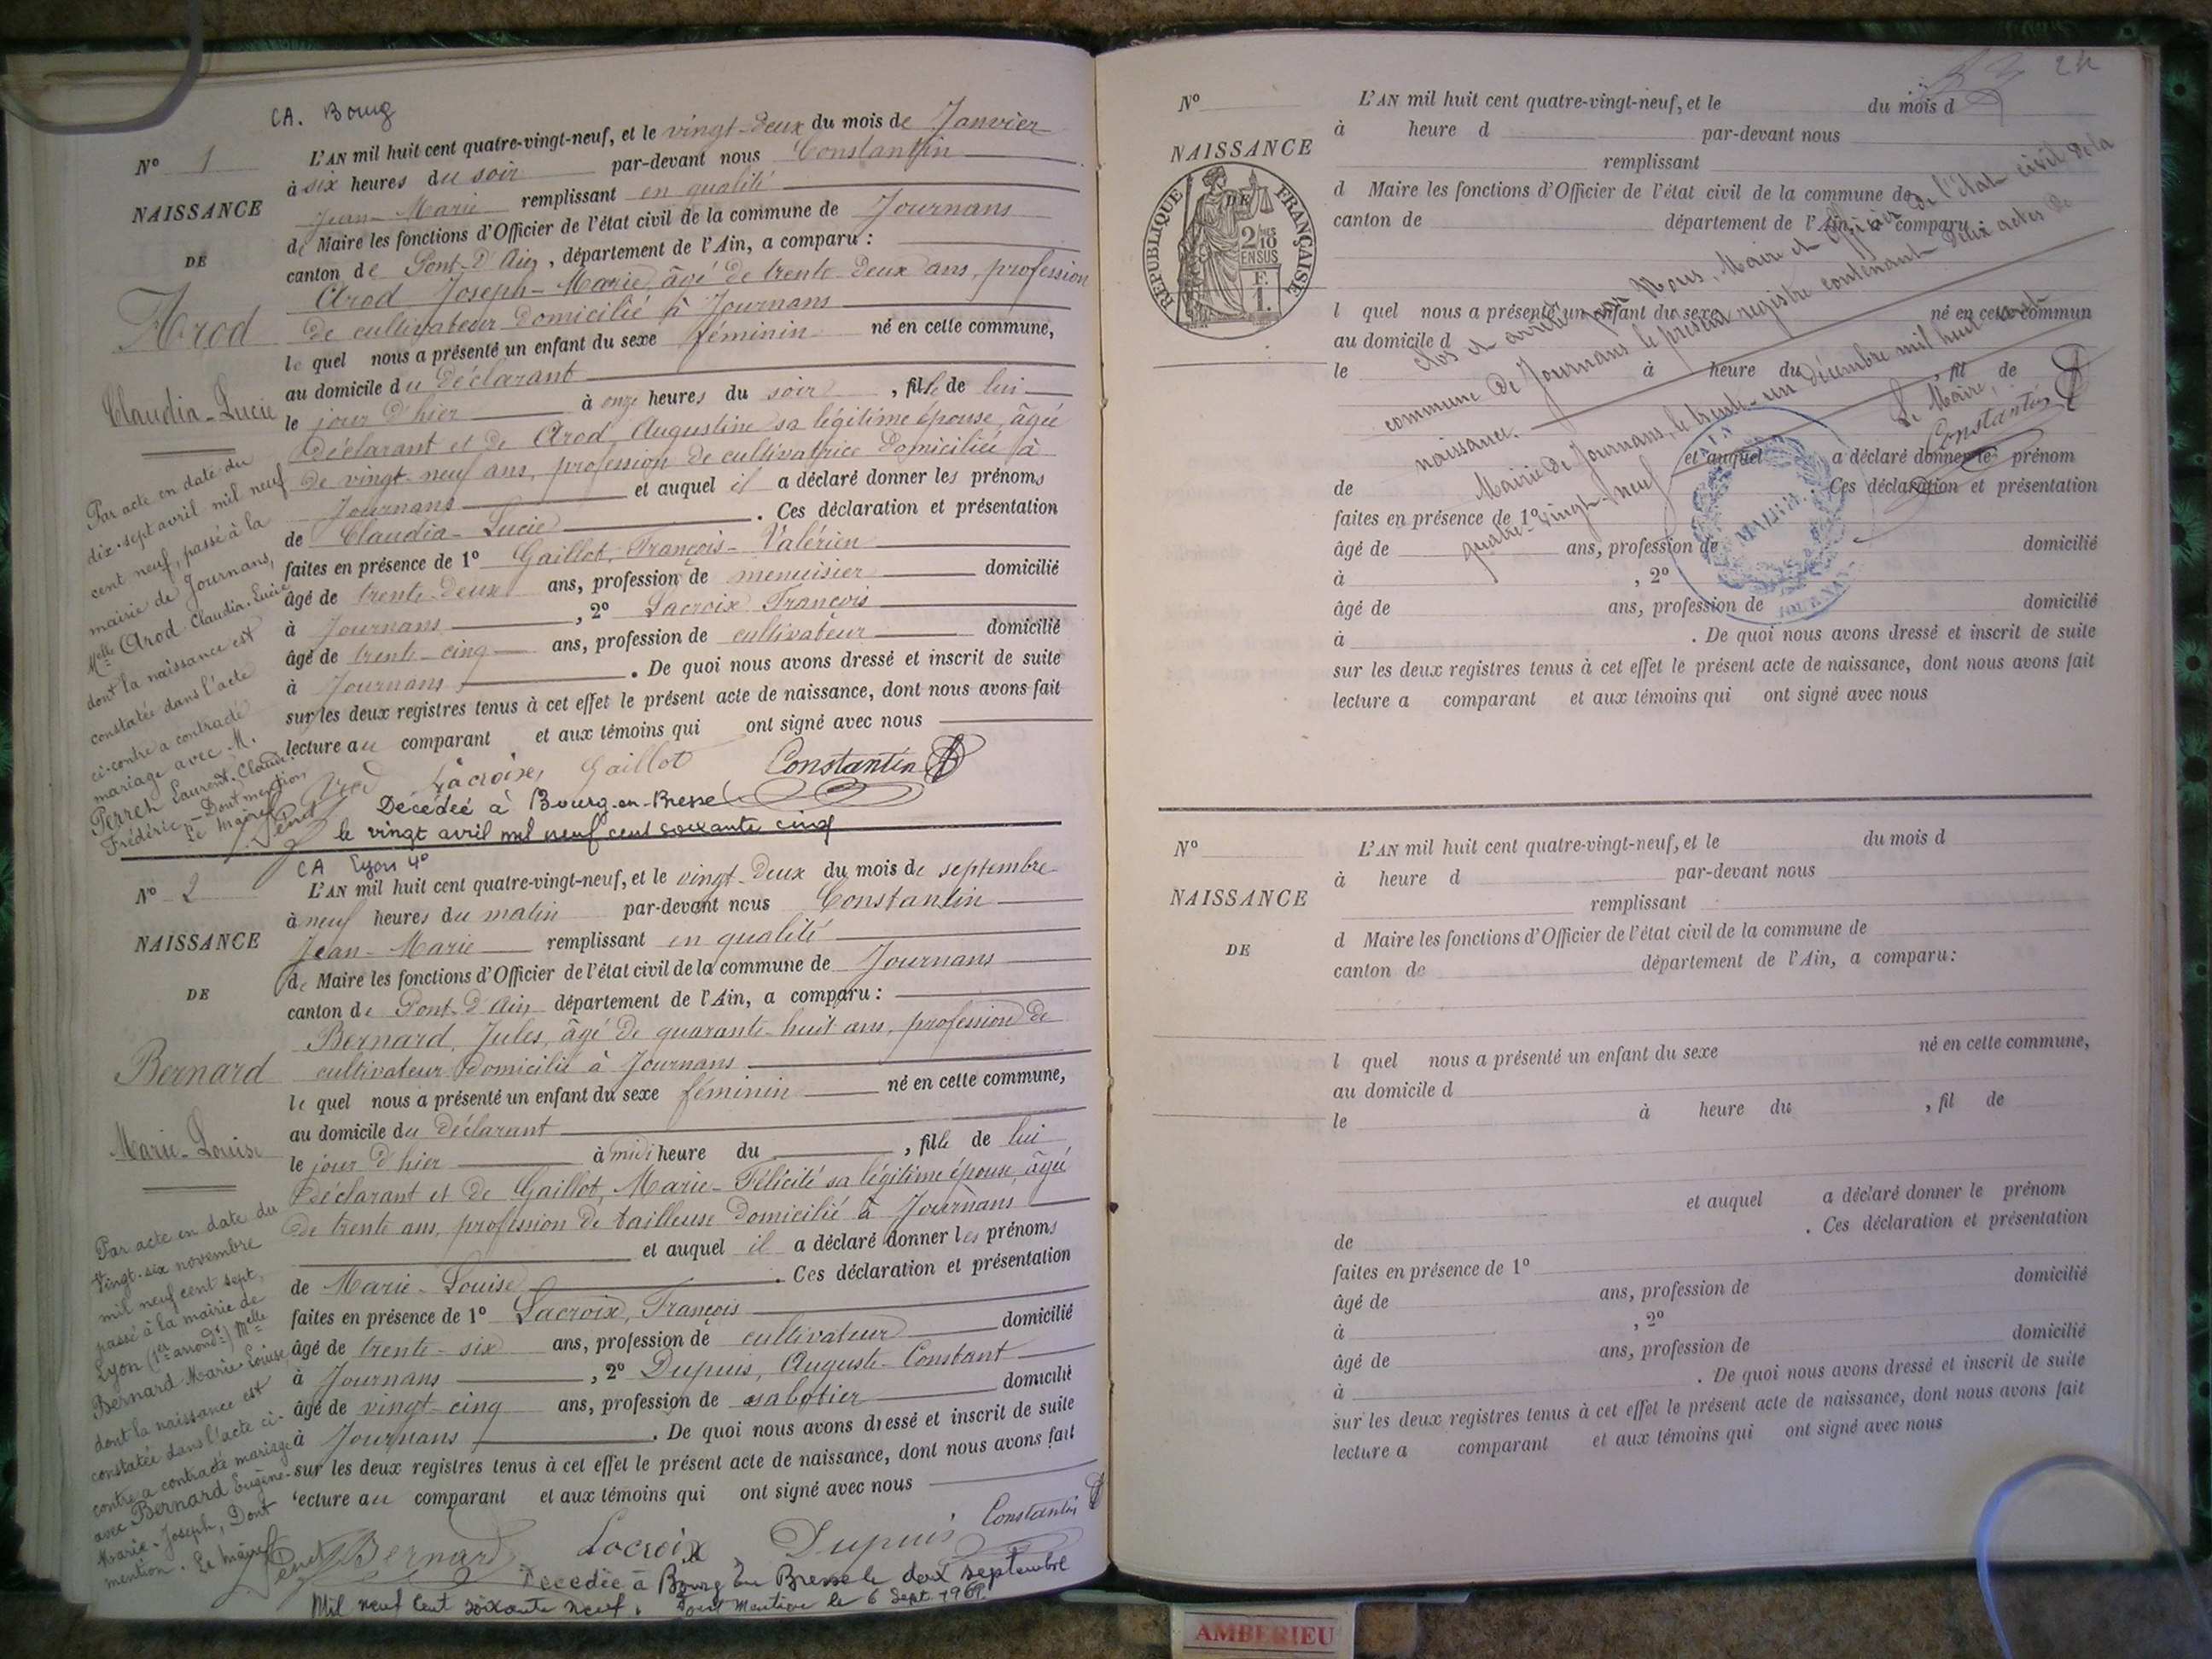 CA. Bourg
N° 1
NAISSANCE
DE
Arod
Claudia-Lucie
L'AN mil huit cent quatre-vingt-neuf, et le vingt-deux du mois de Janvier
à six heures du soir par-devant nous Constantin
Jean-Marie remplissant en qualité
de Maire les fonctions d'Officier de l'état civil de la commune de Journans
canton de Pont-d'Ain, département de l'Ain, a comparu :
Arod Joseph-Marie, âgé de trente-deux ans, profession
de cultivateur domicilié à Journans
lequel nous a présenté un enfant du sexe féminin né en cette commune,
au domicile du déclarant
le jour d'hier à onze heures du soir, fille de lui
déclarant et de Arod, Augustine sa légitime épouse, âgée
de vingt-neuf ans, profession de cultivatrice domiciliée à
Journans et auquel il a déclaré donner les prénoms
de Claudia-Lucie. Ces déclaration et présentation
faites en présence de 1° Gaillot, François-Valérien
âgé de trente-deux ans, profession de menuisier domicilié
à Journans, 2° Lacroix François
âgé de trente-cinq ans, profession de cultivateur domicilié
à Journans. De quoi nous avons dressé et inscrit de suite
sur les deux registres tenus à cet effet le présent acte de naissance, dont nous avons fait
lecture au comparant et aux témoins qui ont signé avec nous
Arod Lacroix Gaillot Constantin
Décédée à Bourg-en-Bresse
le vingt avril mil neuf cent soixante cinq
Par acte en date du
dix-sept avril mil neuf
cent neuf, passé à la
mairie de Journans,
Melle Arod Claudia-Lucie
dont la naissance est
constatée dans l'acte
ci-contre a contracté
mariage avec M.
Perret Laurent-Claude-
Frédéric. - Dont mention
Le Maire
CA Lyon 4°
N° 2
NAISSANCE
DE
Bernard
Marie-Louise
L'AN mil huit cent quatre-vingt-neuf, et le vingt-deux du mois de septembre
à neuf heures du matin par-devant nous Constantin
Jean-Marie remplissant en qualité
de Maire les fonctions d'Officier de l'état civil de la commune de Journans
canton de Pont-d'Ain département de l'Ain, a comparu :
Bernard, Jules, âgé de quarante-huit ans, profession de
cultivateur domicilié à Journans
lequel nous a présenté un enfant du sexe féminin né en cette commune,
au domicile du déclarant
le jour d'hier à midi heure du , fille de lui
déclarant et de Gaillot, Marie-Félicité sa légitime épouse, âgée
de trente ans, profession de tailleuse domicilié à Journans
et auquel il a déclaré donner les prénoms
de Marie-Louise. Ces déclaration et présentation
faites en présence de 1° Lacroix, François
âgé de trente-six ans, profession de cultivateur domicilié
à Journans, 2° Dupuis, Auguste-Constant
âgé de vingt-cinq ans, profession de sabotier domicilié
à Journans. De quoi nous avons dressé et inscrit de suite
sur les deux registres tenus à cet effet le présent acte de naissance, dont nous avons fait
lecture au comparant et aux témoins qui ont signé avec nous
Bernard Lacroix Dupuis Constantin
Décédée à Bourg en Bresse le deux septembre
Mil neuf cent soixante neuf. Dont Mention le 6 Sept. 1969.
Par acte en date du
Vingt-six novembre
mil neuf cent sept,
passé à la mairie de
Lyon (1er arrondt) Melle
Bernard Marie Louise,
dont la naissance est
constatée dans l'acte ci-
contre a contracté mariage
avec Bernard Eugène-
Marie-Joseph, Dont
mention. Le Maire
24
N°
NAISSANCE
DE
RÉPUBLIQUE FRANÇAISE
2/10
EN SUS
F.
1.
L'AN mil huit cent quatre-vingt-neuf, et le du mois d
à heure d par-devant nous
remplissant
d Maire les fonctions d'Officier de l'état civil de la commune de
canton de département de l'Ain, a comparu :
l quel nous a présenté un enfant du sexe né en cette commun
au domicile d
le à heure du , fil de
et auquel a déclaré donner le prénom
de . Ces déclaration et présentation
faites en présence de 1°
âgé de ans, profession de domicilié
à , 2°
âgé de ans, profession de domicilié
à . De quoi nous avons dressé et inscrit de suite
sur les deux registres tenus à cet effet le présent acte de naissance, dont nous avons fait
lecture a comparant et aux témoins qui ont signé avec nous
Clos et arrêté par Nous, Maire et Officier de l'état civil de la
commune de Journans le présent registre contenant deux actes de
naissance.
Mairie de Journans, le trente-un décembre mil huit cent
quatre-vingt-neuf
Le Maire,
Constantin
MAIRIE
AIN
JOURNANS
N°
NAISSANCE
DE
L'AN mil huit cent quatre-vingt-neuf, et le du mois d
à heure d par-devant nous
remplissant
d Maire les fonctions d'Officier de l'état civil de la commune de
canton de département de l'Ain, a comparu :
l quel nous a présenté un enfant du sexe né en cette commune,
au domicile d
le à heure du , fil de
et auquel a déclaré donner le prénom
de . Ces déclaration et présentation
faites en présence de 1°
âgé de ans, profession de domicilié
à , 2°
âgé de ans, profession de domicilié
à . De quoi nous avons dressé et inscrit de suite
sur les deux registres tenus à cet effet le présent acte de naissance, dont nous avons fait
lecture a comparant et aux témoins qui ont signé avec nous
AMBERIEU